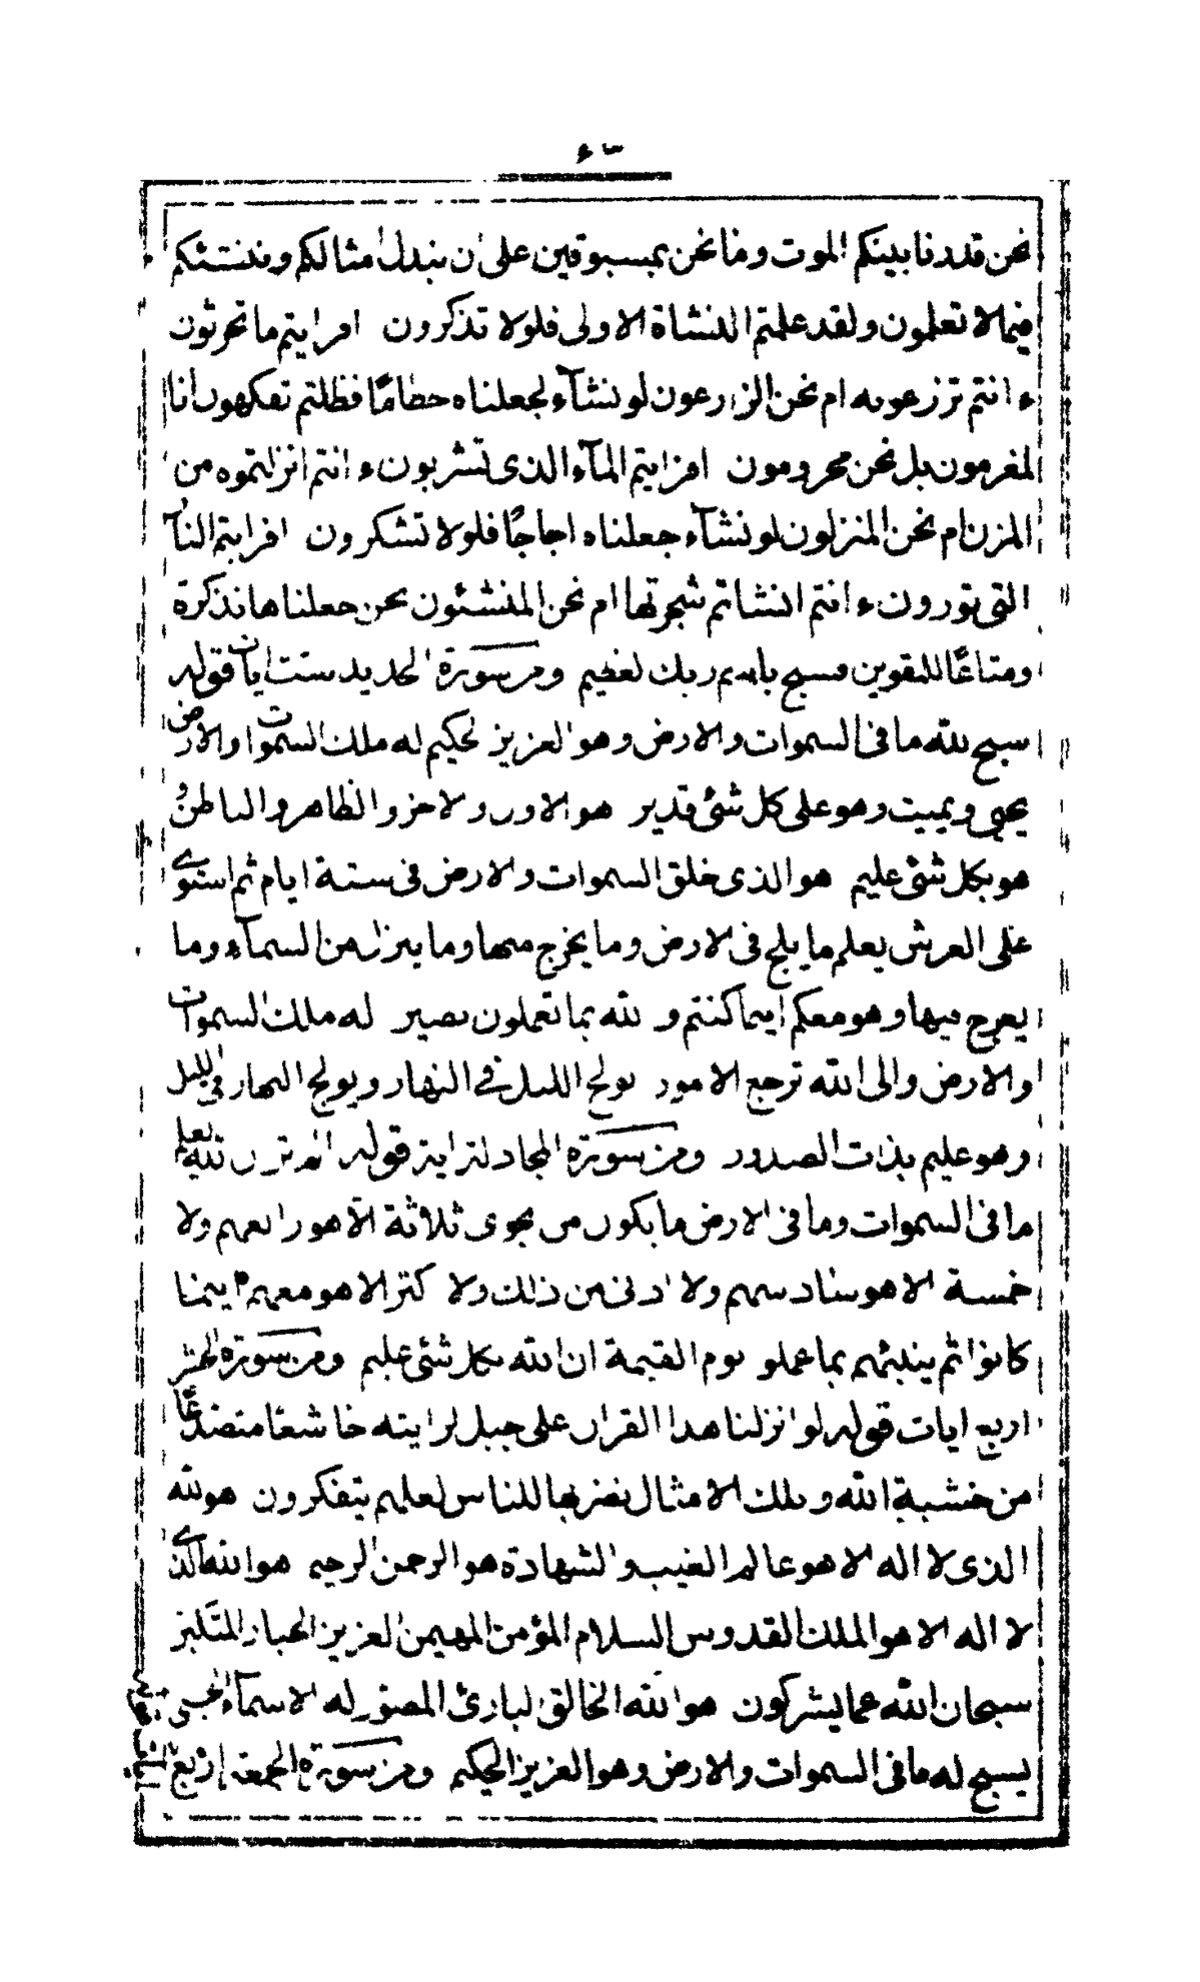 نحن قدرنا بينكم الموت وما نحن بمسبوقين على ان نبدل امثالكم وننشئكم
فيما لا تعلمون ولقد علمتم النشاة الاولى فلولا تذكرون افرايتم ما تحرثون
ء انتم تزرعونه ام نحن الزارعون لو نشآء لجعلناه حطامًا فظلتم تفكهون انا
لمغرمون بل نحن محرومون افرايتم المآء الذى تشربون ء انتم انزلتموه من
المزن ام نحن المنزلون لو نشآء جعلناه اجاجًا فلولا تشكرون افرايتم النآر
التى تورون ء انتم انشاتم شجرتها ام نحن المنشئون نحن جعلناها تذكرة
ومتاعًا للمقوين فسبح باسم ربك لعظيم ومن سورة الحديد ست ايات قوله
سبح لله ما فى السموات والارض وهو العزيز لحكيم له ملك السموات والارض
يحيى ويميت وهو على كل شئ قدير هو الاول والاخر والظاهر والباطن و
هو بكل شئ عليم هو الذى خلق السموات والارض فى ستة ايام ثم استوى
على العرش يعلم ما يلج فى الارض وما يخرج منها وما ينزل من السمآء وما
يعرج فيها وهو معكم اينما كنتم و الله بما تعملون بصير له ملك السموات
والارض والى الله ترجع الامور يولج الليل فى النهار ويولج النهار فى الليل
وهو عليم بذات الصدور ومن سورة المجادلة اية قوله الم تر ان الله يعلم
ما فى السموات وما فى الارض ما يكون من نجوى ثلاثة الا هو رابعهم ولا
خمسة الا هو سادسهم ولا ادنى من ذلك ولا اكثر الا هو معهم اينما
كانوا ثم ينبئهم بما عملو يوم القيمة ان الله بكل شئ عليم ومن سورة الحشر
اربع ايات قوله لو انزلنا هذا القران على جبل لرايته خاشعًا متصدعًا
من خشية الله وتلك الامثال نضربها للناس لعلهم يتفكرون هو الله
الذى لا اله الا هو عالم الغيب والشهادة هو الرحمن الرحيم هو الله الذى
لا اله الا هو الملك القدوس السلام المؤمن المهيمن العزيز الجبار المتكبر
سبحان الله عما يشركون هو الله الخالق البارئ المصور له الاسمآء الحسنى
يسبح له ما فى السموات والارض وهو العزيز الحكيم ومن سورة الجمعة اربع